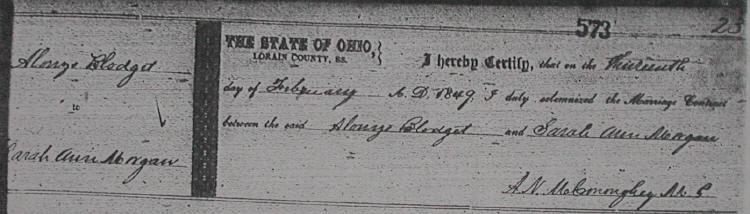 573 23
Alonzo Blodget
to
Sarah Ann Morgan
THE STATE OF OHIO,
LORAIN COUNTY, SS.
I hereby Certify, that on the Thirteenth
day of February A. D. 1849, I duly solemnized the Marriage Contract
between the said Alonzo Blodget and Sarah Ann Morgan
A. N. McConoughey